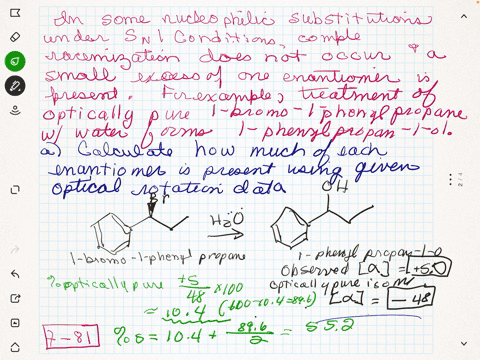 In some nucleophilic substitutions
under SN1 Conditions, comple
racemization does not occur & a
small excess of one enantiomer is
present. For example, treatment of
optically pure 1-bromo-1-phenyl propane
w/ water forms 1-phenylpropan-1-ol.
a) Calculate how much of each
enantiomer is present using given
optical rotation data
Br
OH
H2Ö
1-bromo-1-phenyl propane
1-phenyl propan-1-o
Observed [a] = +5.0
optically pure isomer
[a] = -48
% optically pure +5/48 x100
= 10.4 (100-10.4=89.6)
7-81
% S = 10.4 + 89.6/2 = 55.2
2/4